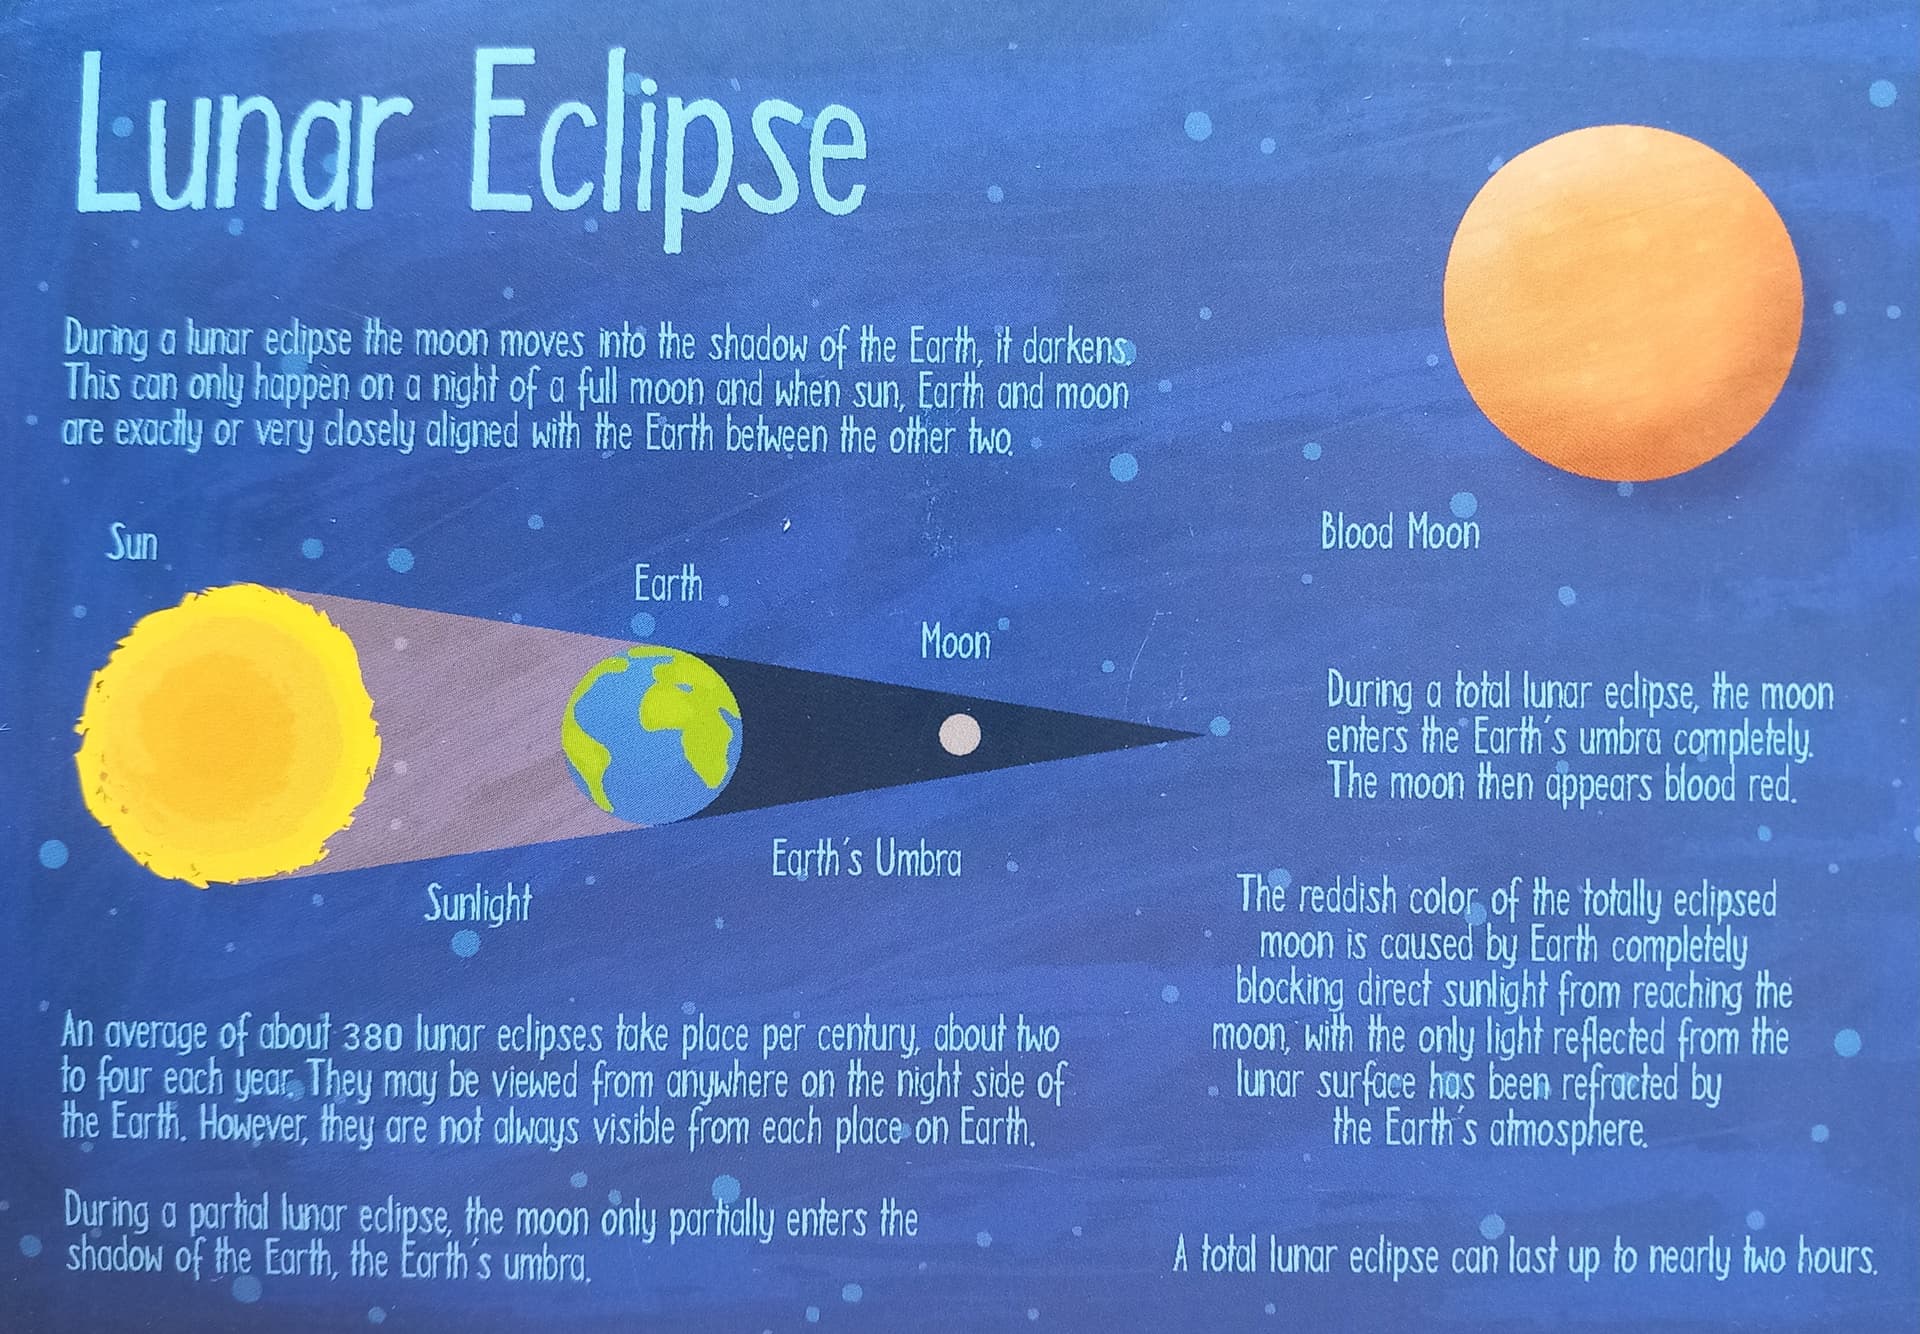 Lunar Eclipse
During a lunar eclipse the moon moves into the shadow of the Earth, it darkens.
This can only happen on a night of a full moon and when sun, Earth and moon
are exactly or very closely aligned with the Earth between the other two.
Sun
Earth
Moon
Sunlight
Earth's Umbra
Blood Moon
During a total lunar eclipse, the moon
enters the Earth's umbra completely.
The moon then appears blood red.
The reddish color of the totally eclipsed
moon is caused by Earth completely
blocking direct sunlight from reaching the
moon, with the only light reflected from the
lunar surface has been refracted by
the Earth's atmosphere.
An average of about 380 lunar eclipses take place per century, about two
to four each year. They may be viewed from anywhere on the night side of
the Earth. However, they are not always visible from each place on Earth.
During a partial lunar eclipse, the moon only partially enters the
shadow of the Earth, the Earth's umbra.
A total lunar eclipse can last up to nearly two hours.